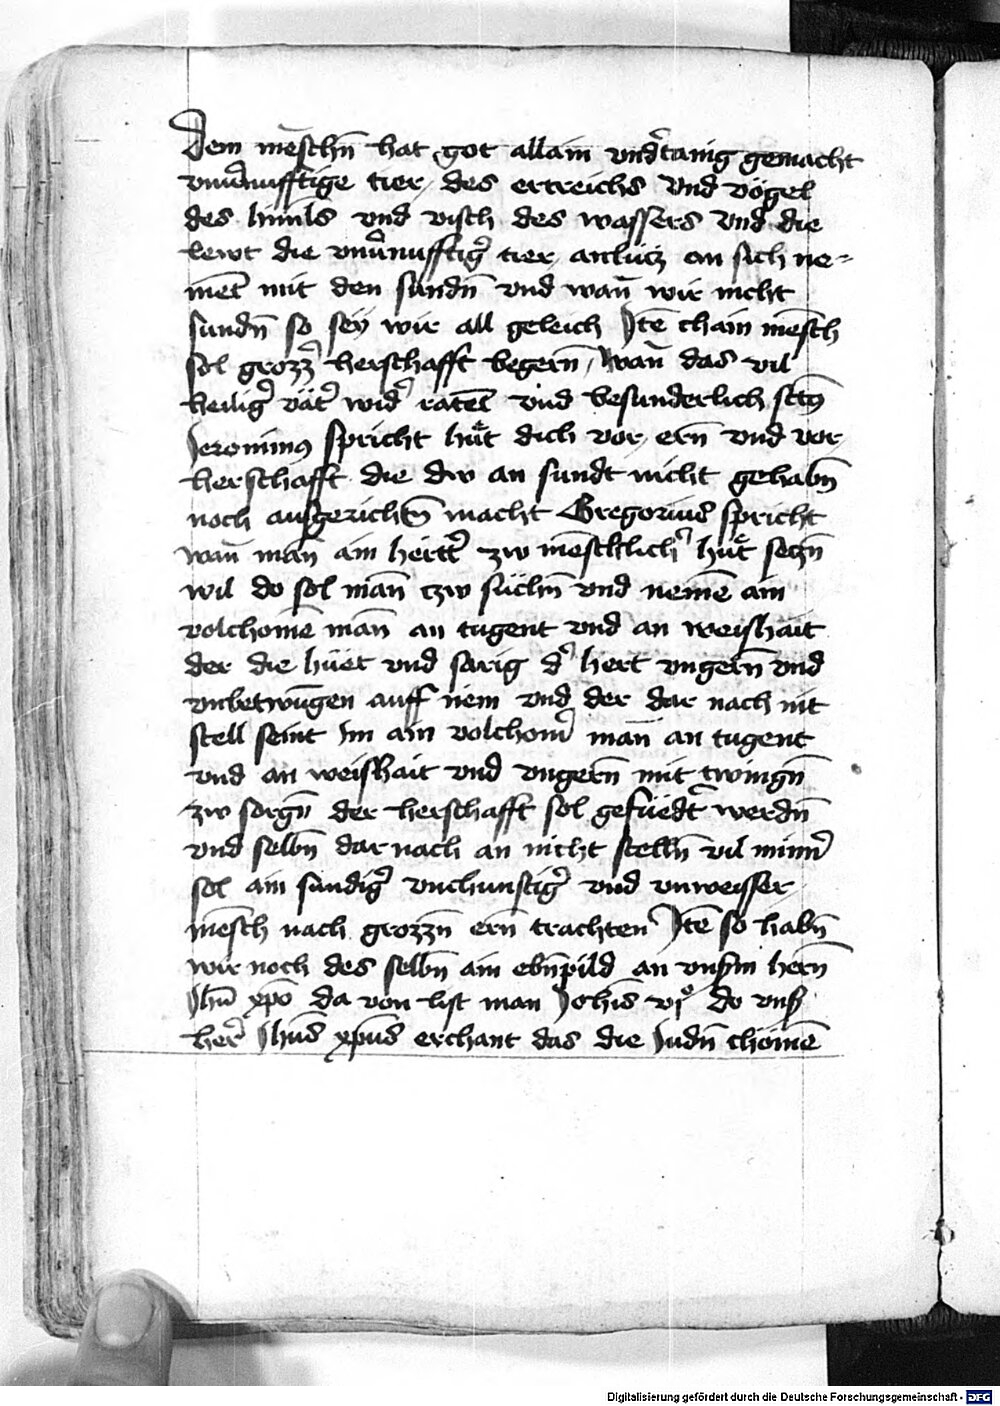 Dem mēschn̄ hat got allain vnd͛tanig gemacht
vnu͛nufftige tier des ertreichs vnd vögel
des himls vnd visch des wassers vnd die
lewt die vnu͛nufftig͛ tier antlütz an sich ne⸗
ment mit den sündn̄ vnd wan̄ wir nicht
sundn̄ so sey wir all geleich Itē chain mēsch
sol grozz͛ herschafft begern̄ wan̄ das vil
heilig͛ vät͛ wid͛ raten vnd besunderlich sctꝰ
Jeronimꝰ spricht hüt dich vor ern̄ vnd vor
herschafft die dw an sundt nicht gehabn̄
noch ausgerichtn̄ macht Gregorius spricht
wan̄ man̄ ain hertt͛ zw menschlich͛ hüt seczn̄
wil do sol man̄ czw süchn̄ vnd nemē ain
volchomē man̄ an tugent vnd an weishait
der die hüet vnd sarig d͛ hert vngern̄ vnd
vnbetwūgen auff nem vnd der dar nach nit
stell seint im ain volchom͛ man̄ an tugent
vnd an weishait vnd vngern̄ mit twingn̄
zw sorgn̄ der herschafft sol gefüedt͛ werdn̄
vnd selbn̄ dar nach an nicht stelln̄ vil minn͛
sol ain sündig͛ vnchunstig͛ vnd vnweisser
mēsch nach grozzn̄ ern̄ trachten Itē so habn̄
wir noch des selbn̄ ain ebn̄pild an vnsm̄ hern̄
Jhū xp̄o da von list man Joh̄is vjº do vns͛
her͛ Jhūs xp̄us erchant das die Judn̄ chömē